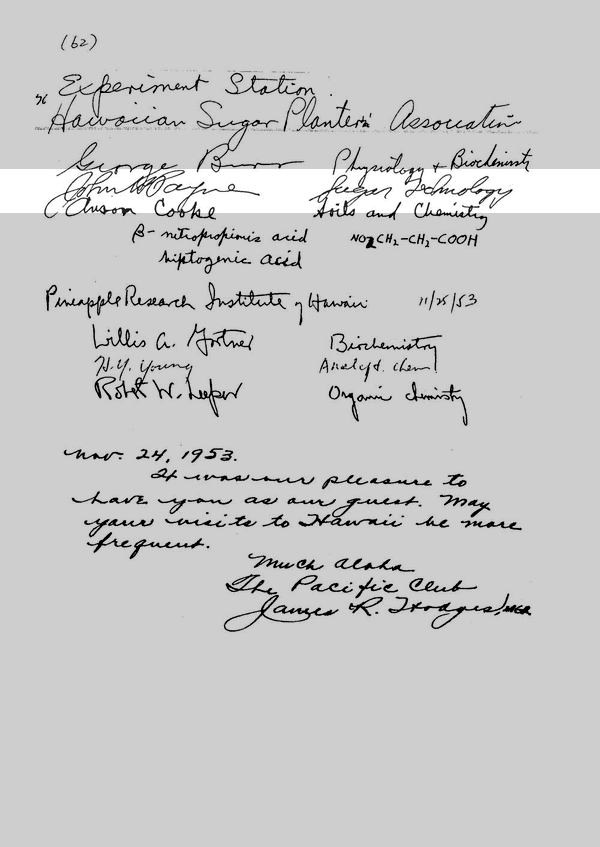 (62)
Experiment Station
Hawaiian Sugar Planters' Association
George Burr Physiology + Biochemistry
John H Payne Sugar Technology
Anson Cooke Soils and Chemistry
β-nitropropionic acid NO2CH2-CH2-COOH
hiptogenic acid
Pineapple Research Institute of Hawaii 11/25/53
Willis A. Gortner Biochemistry
H.Y. Young Analyt. Chem.
Robert W. Leeper Organic Chemistry
Nov. 24, 1953.
It was our pleasure to
have you as our guest. May
your visits to Hawaii be more
frequent.
Much Aloha
The Pacific Club
James R. Hodges, MGR